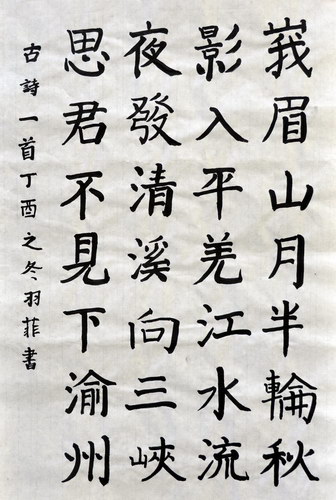 峩眉山月半輪秋
影入平羌江水流
夜發清溪向三峽
思君不見下渝州
古詩一首丁酉之冬羽菲書